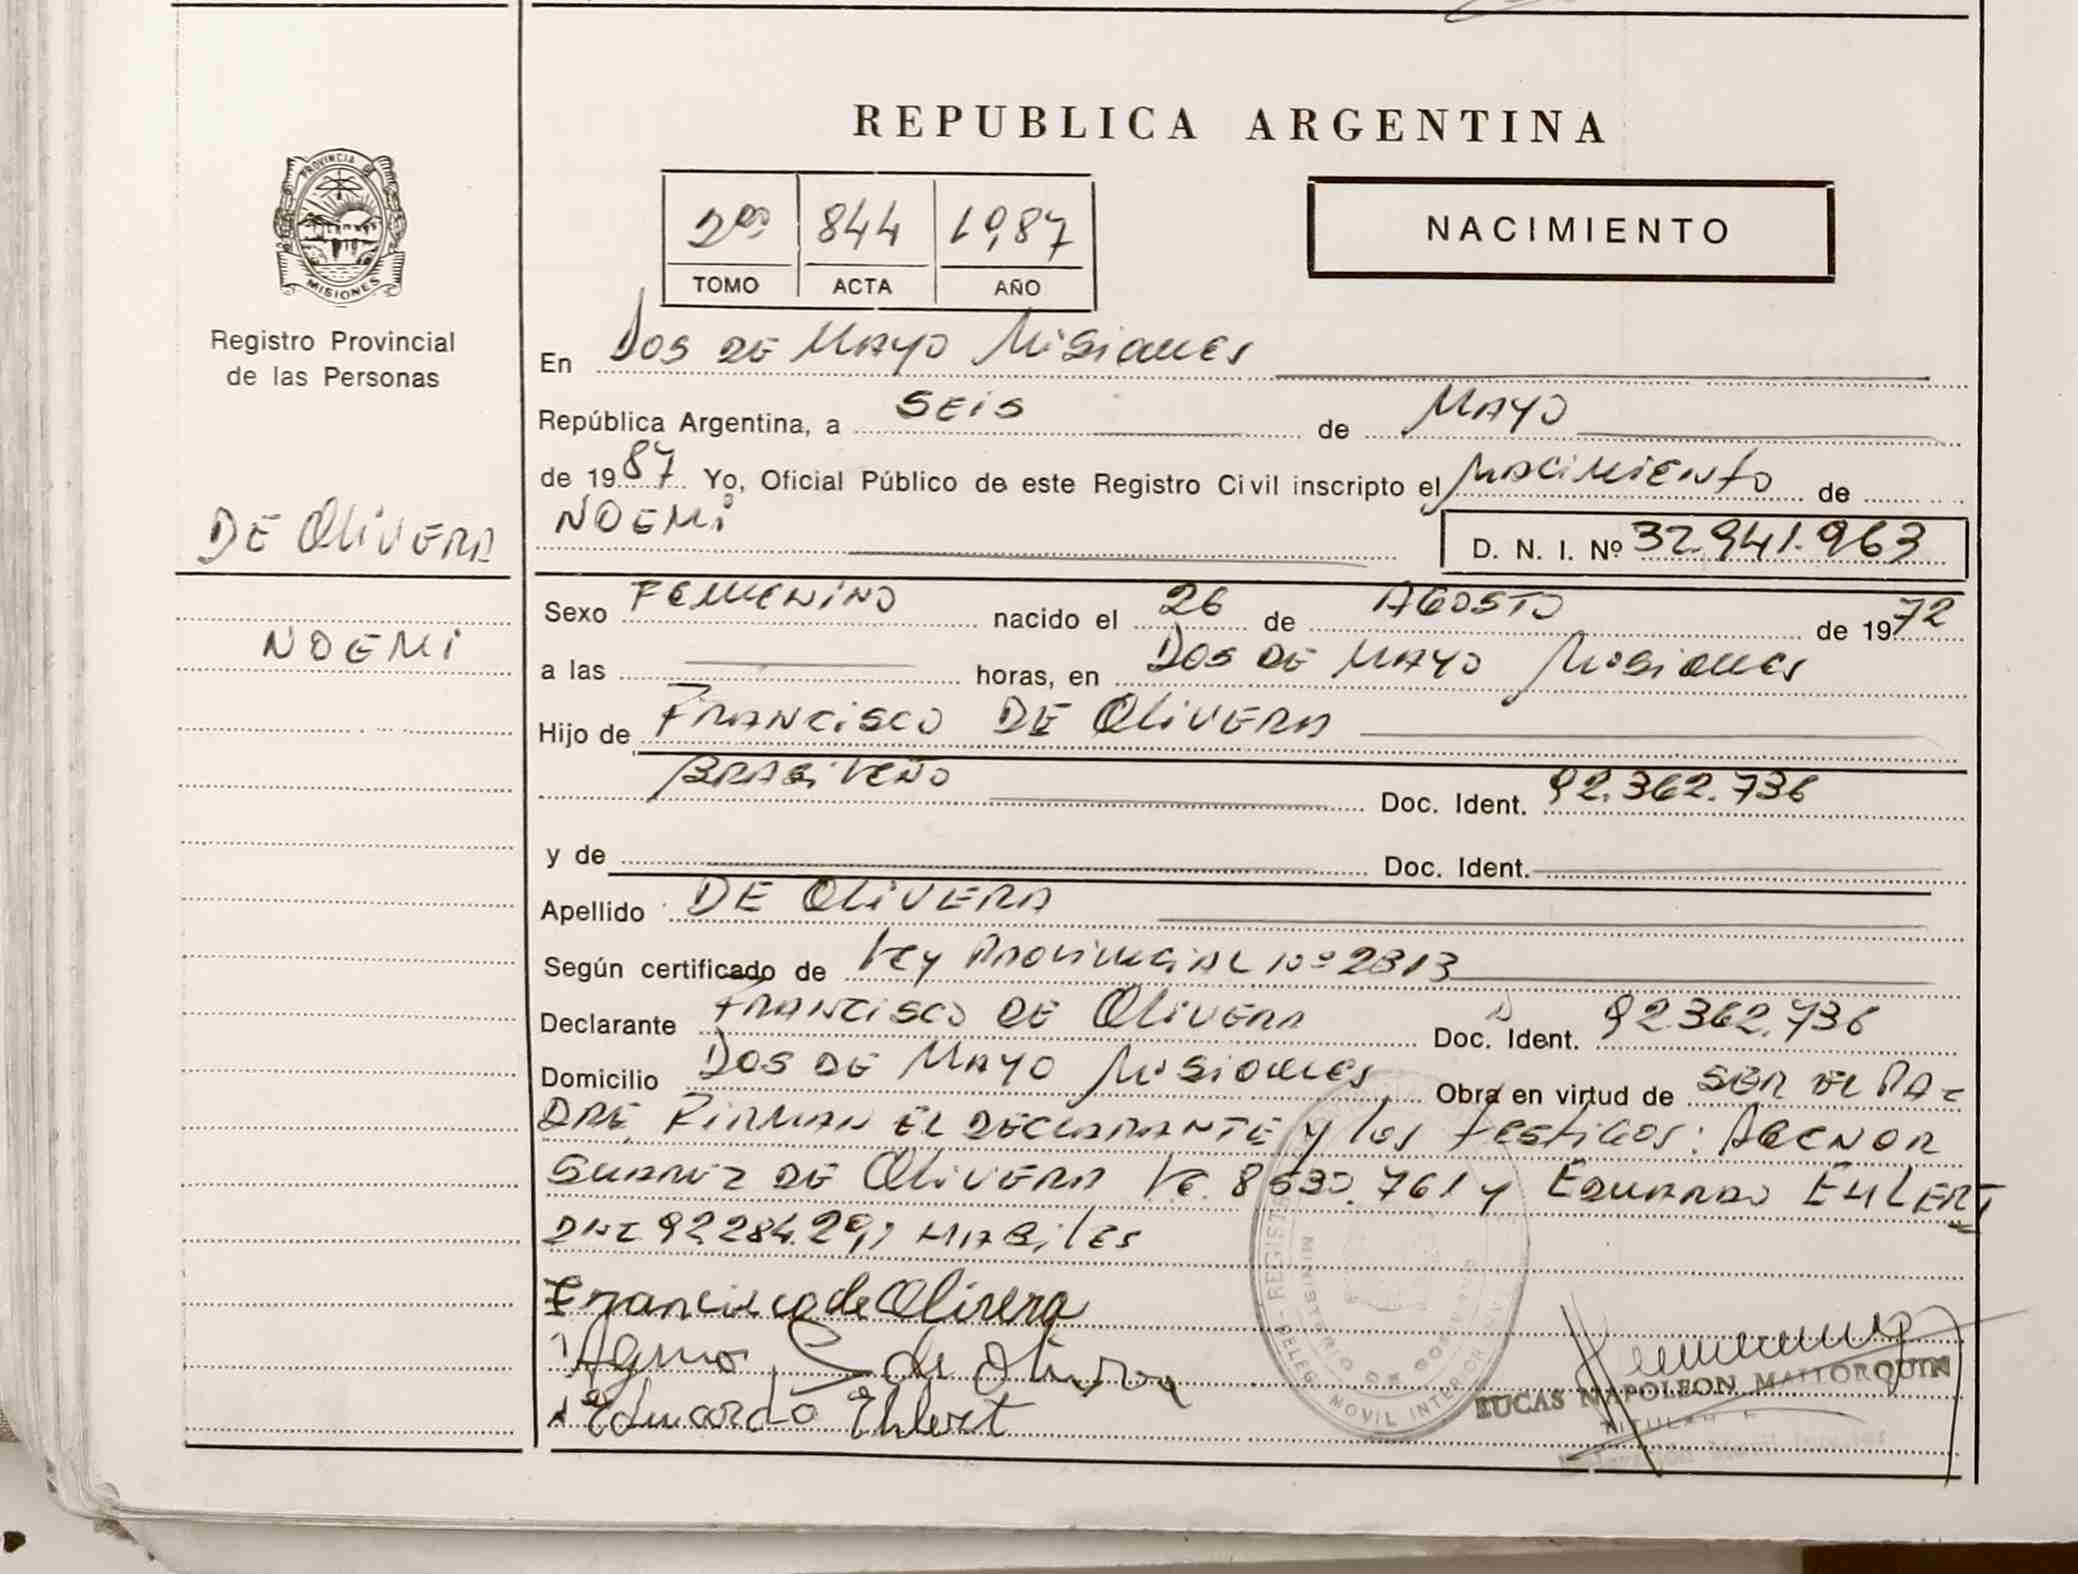 REPUBLICA ARGENTINA
PROVINCIA DE
MISIONES
Registro Provincial
de las Personas
2do 844 1987
TOMO ACTA AÑO
NACIMIENTO
En Dos DE MAYO Misiones
República Argentina, a SEIS de MAYO
de 1987 Yo, Oficial Público de este Registro Civil inscripto el NACIMIENTO de
DE OLIVERA
NOEMI
NOEMI D. N. I. Nº 32.941.963
Sexo FEMENINO nacido el 26 de AGOSTO de 1972
a las horas, en Dos DE MAYO Misiones
Hijo de FRANCISCO DE OLIVERA
BRASILEÑO Doc. Ident. 92.362.736
y de Doc. Ident.
Apellido DE OLIVERA
Según certificado de Ley PROVINCIAL Nº 2813
Declarante FRANCISCO DE OLIVERA Doc. Ident. 92362.736
Domicilio DOS DE MAYO Misiones Obra en virtud de SER EL PA-
DRE FIRMAN EL DECLARANTE y los testigos: AGENOR
SUAREZ DE OLIVERA LE. 8530.761 y EDUARDO EHLERT
DNI 92284.291 HABILES
Francisco de Olivera
Agenor S de Olivera
Eduardo Ehlert
LUCAS NAPOLEON MALLORQUIN
TITULAR
DELEG. MOVIL INTERIOR
MINISTERIO DE GOBIERNO